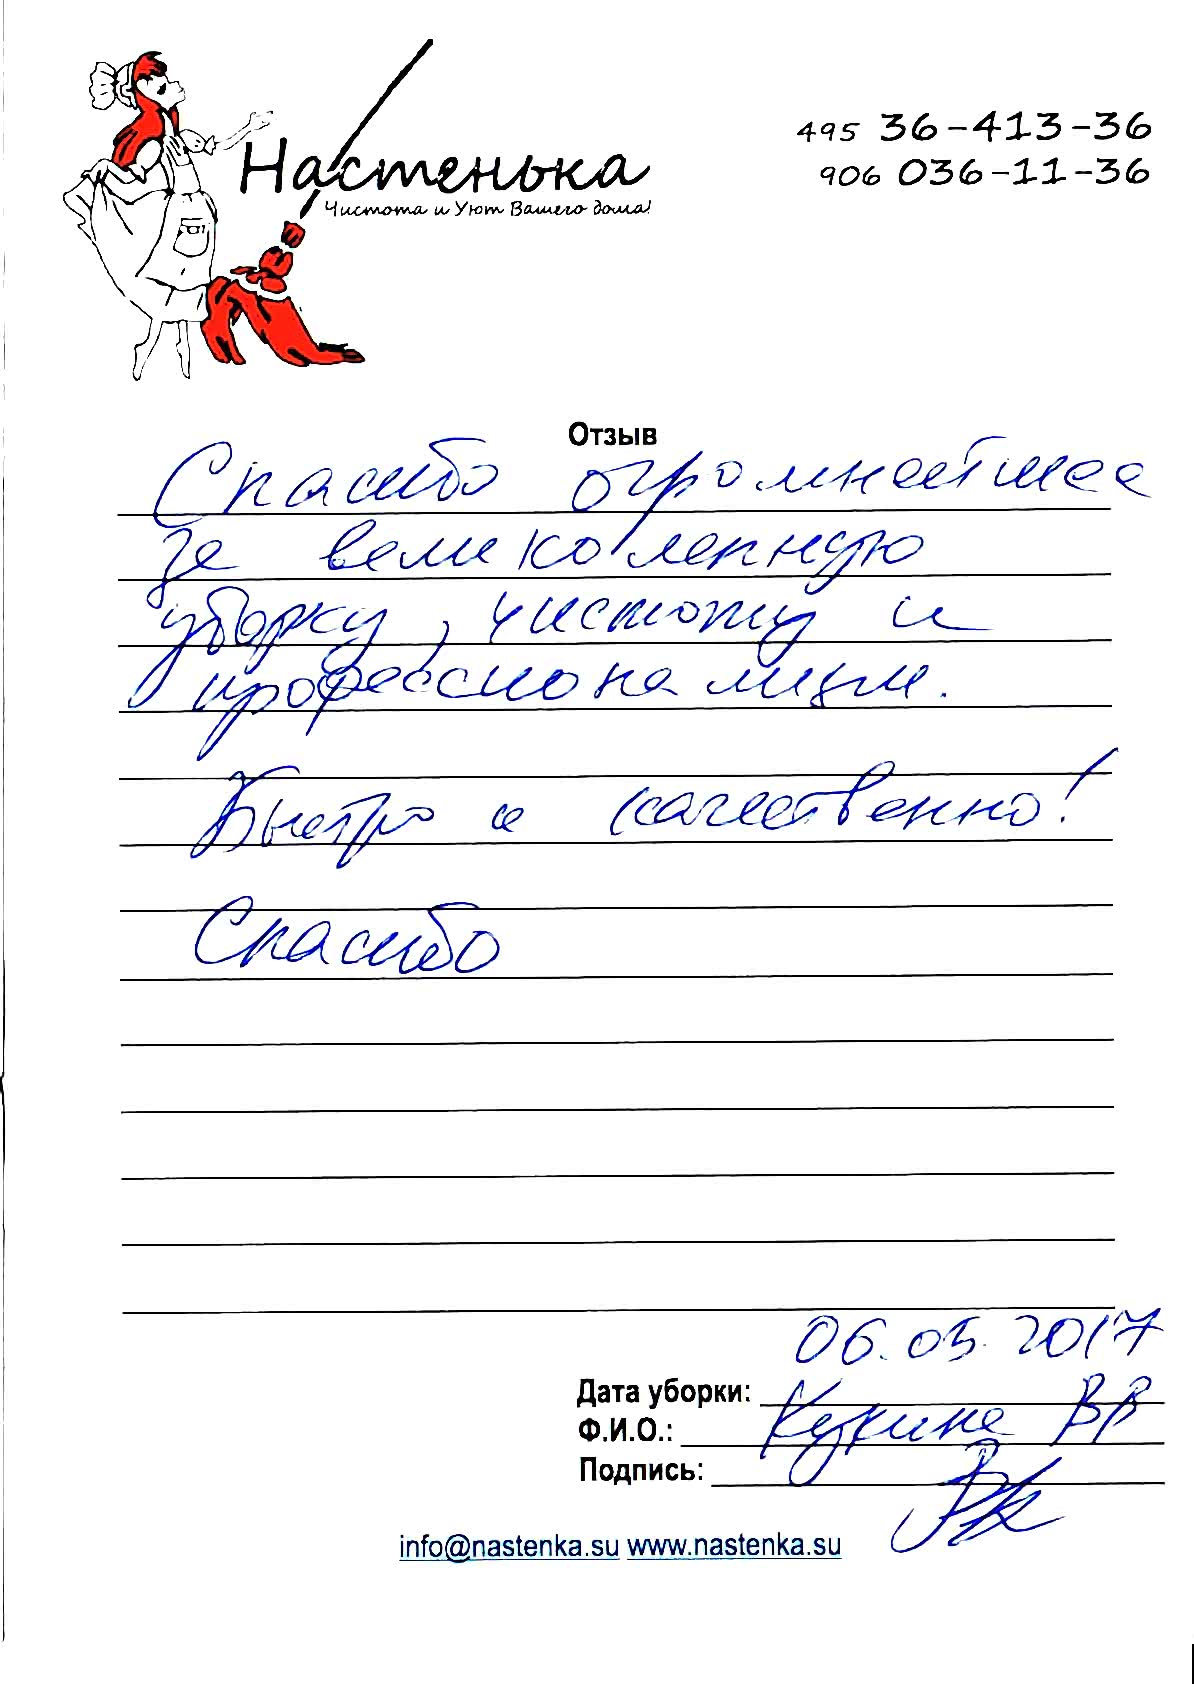 Настенька
Чистота и Уют Вашего дома!
495 36-413-36
906 036-11-36
Отзыв
Спасибо огромнейшее
за великолепную
уборку, чистоту и
профессионализм.
Быстро и качественно!
Спасибо
06.05.2017
Дата уборки:
Ф.И.О.: ВВ
Подпись:
info@nastenka.su www.nastenka.su